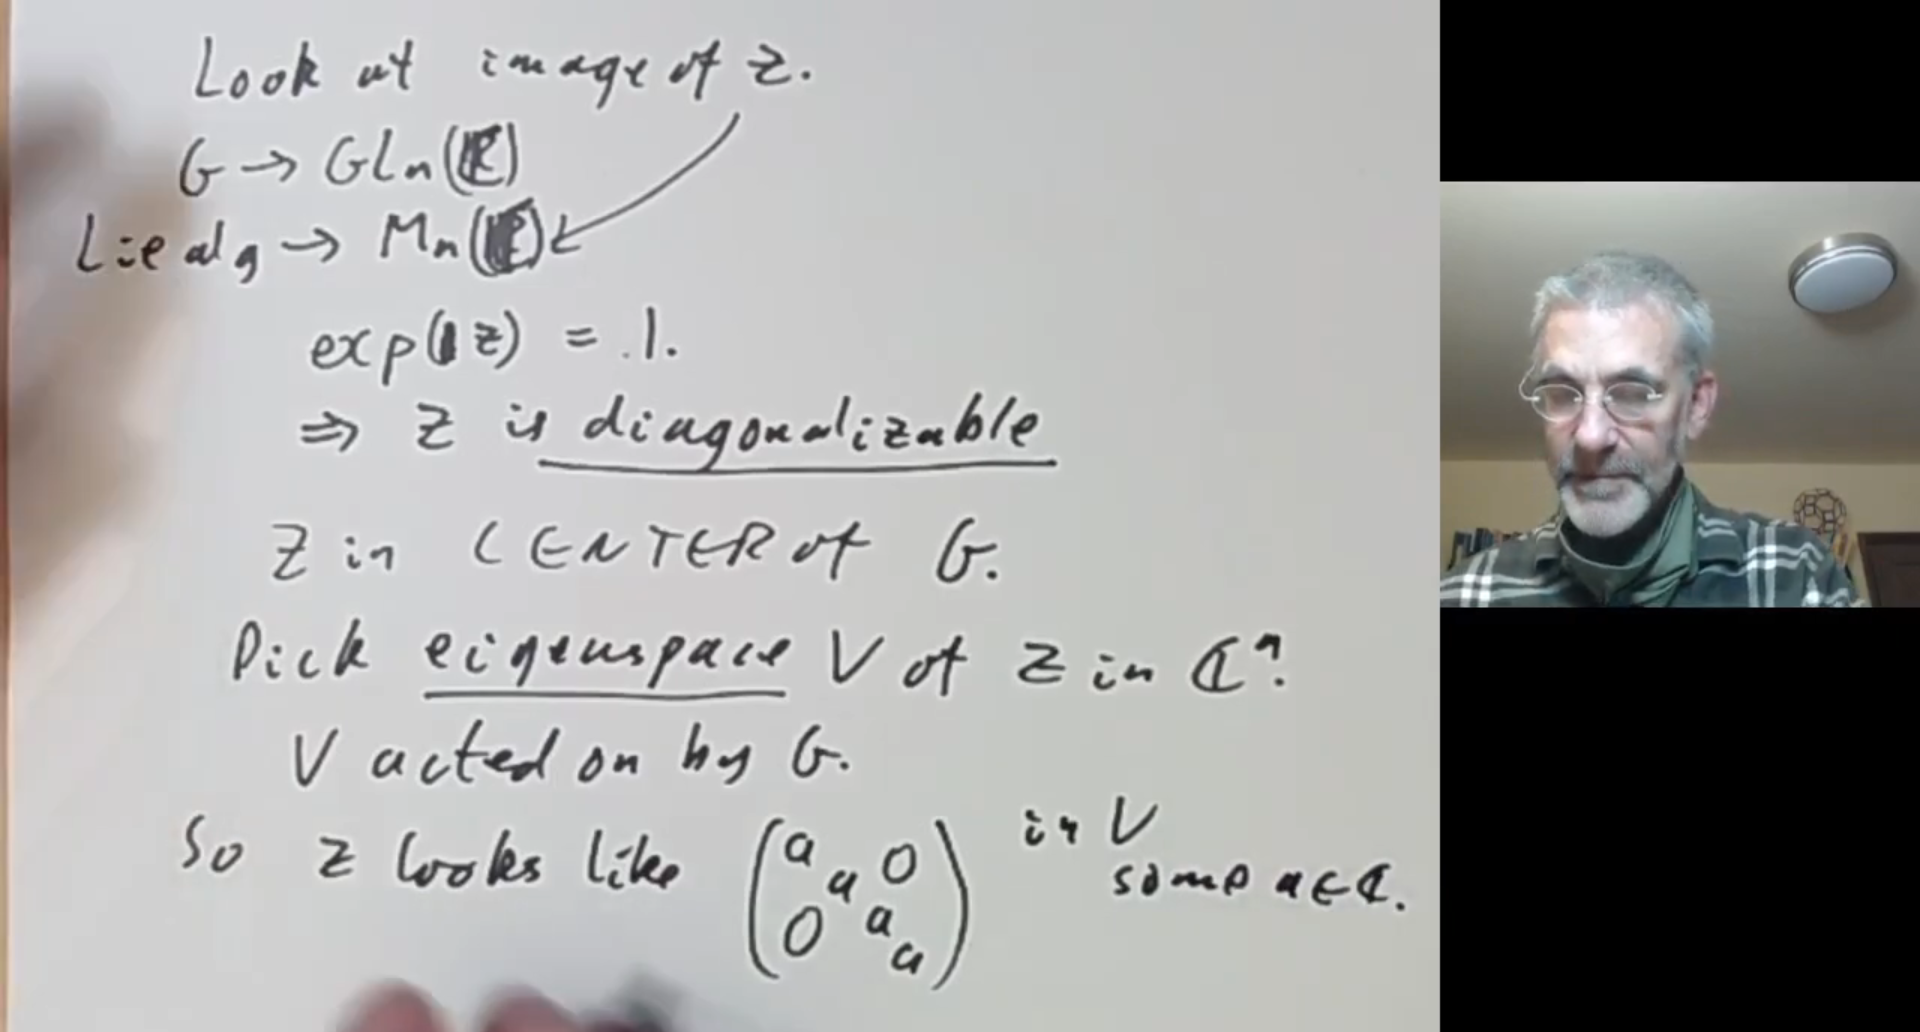 Look at image of z.
G → GLn(C)
Lie alg → Mn(C)
exp(1z) = 1.
⇒ Z is diagonalizable
Z in CENTER of G.
Pick eigenspace V of Z in ℂⁿ.
V acted on by G.
So z looks like (a a a a 0 0) in V
some a∈ℂ.